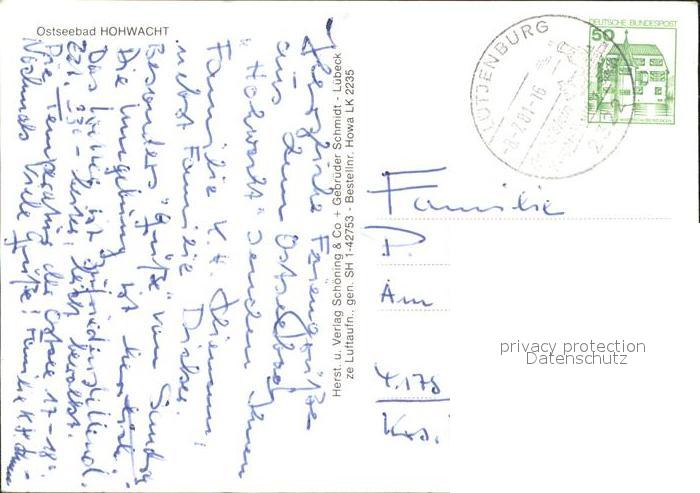 Ostseebad HOHWACHT
Herzliche Feriengrüße
aus dem Ostseebad
"Hohwacht" senden Ihnen
Familie K. H.
nebst Familie
Besonders Grüße von
Die Umgebung ist herrlich.
Das Wetter ist zufriedenstellend.
22°, heiter, leicht bewölkt.
Die Temperatur der Ostsee 17-18°.
Nochmals viele Grüße! Familie K. H.
Herst. u. Verlag Schöning & Co + Gebrüder Schmidt - Lübeck
ze Luftaufn., gen. SH 1-42753 - Bestellnr. Howa LK 2235
LÜTJENBURG
DEUTSCHE BUNDESPOST
50
Familie
P.
Am
4178
privacy protection
Datenschutz